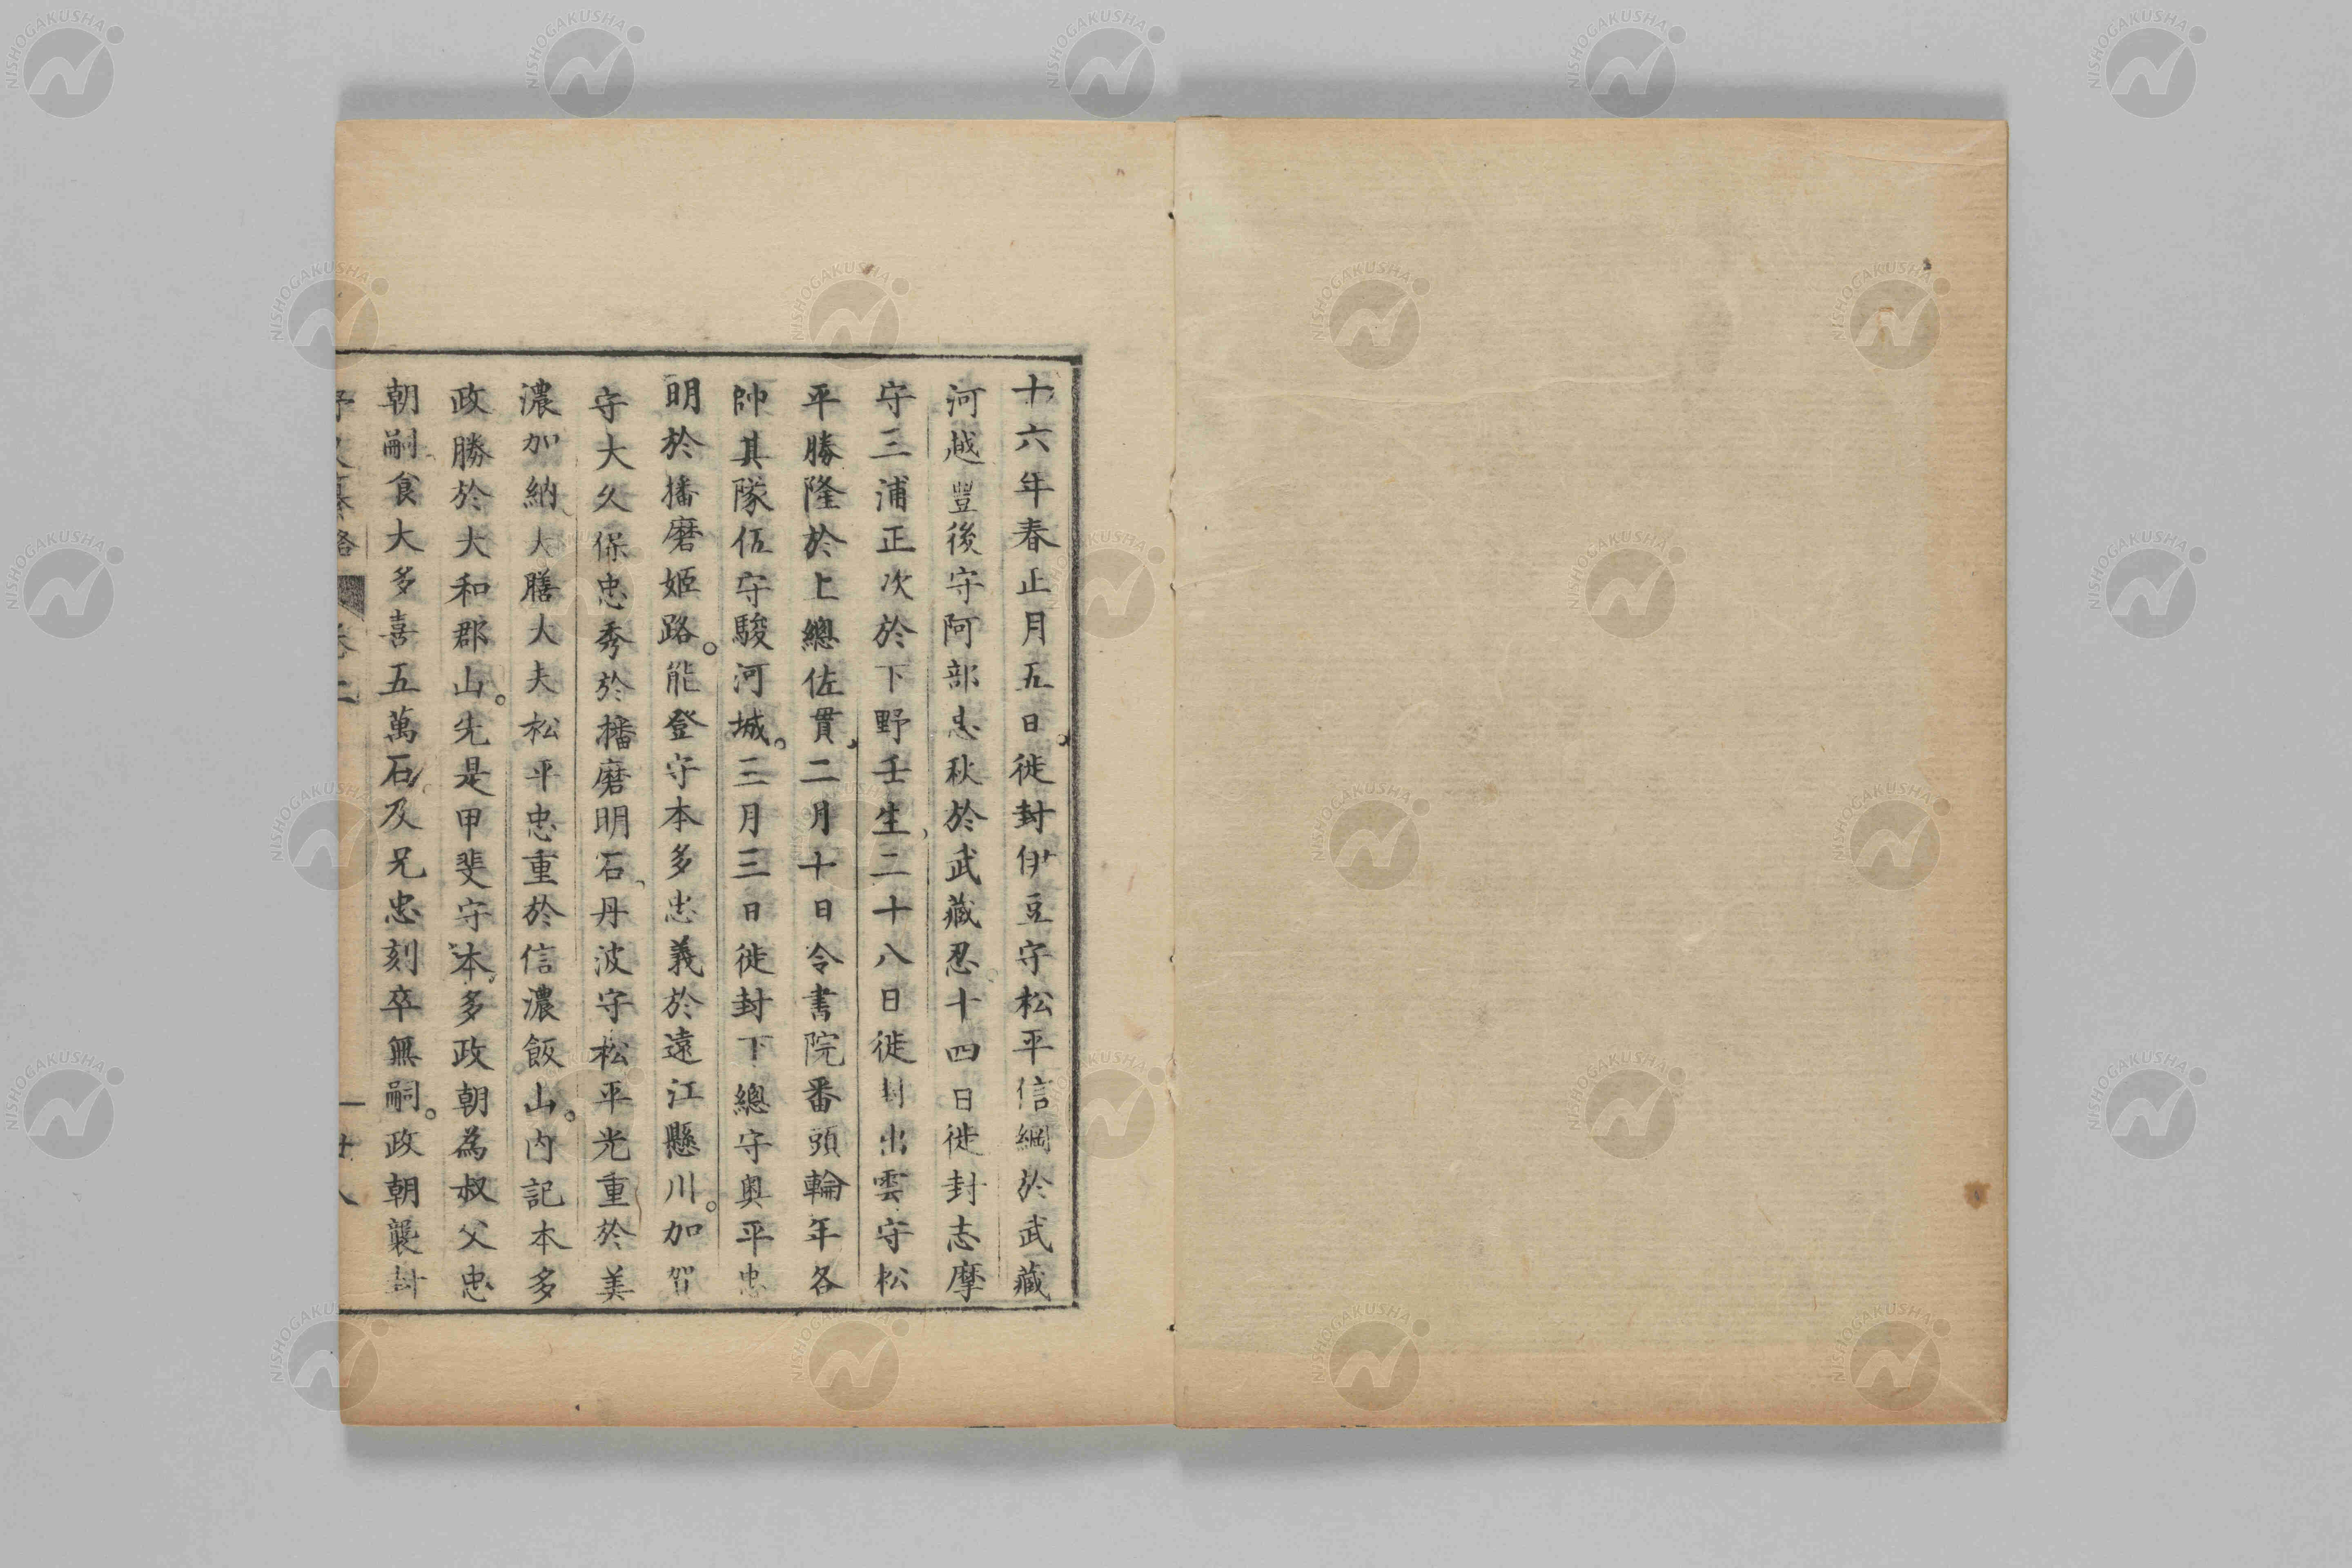 十六年春正月五日。徙封伊豆守松平信綱於武藏
河越豐後守阿部忠秋於武藏忍十四日徙封志摩
守三浦正次於下野壬生、二十八日徙封出雲守松
平勝隆於上總佐貫、二月十日令書院番頭輪年各
帥其隊伍守駿河城。三月三日徙封下總守奥平忠
明於播磨姬路。能登守本多忠義於遠江懸川。加賀
守大久保忠秀於播磨明石、丹波守松平光重於美
濃加納、大膳大夫松平忠重於信濃飯山。内記本多
政勝於大和郡山。先是甲斐守本多政朝為叔父忠
朝嗣食大多喜五萬石及兄忠刻卒無嗣。政朝襲封
NISHOGAKUSHA